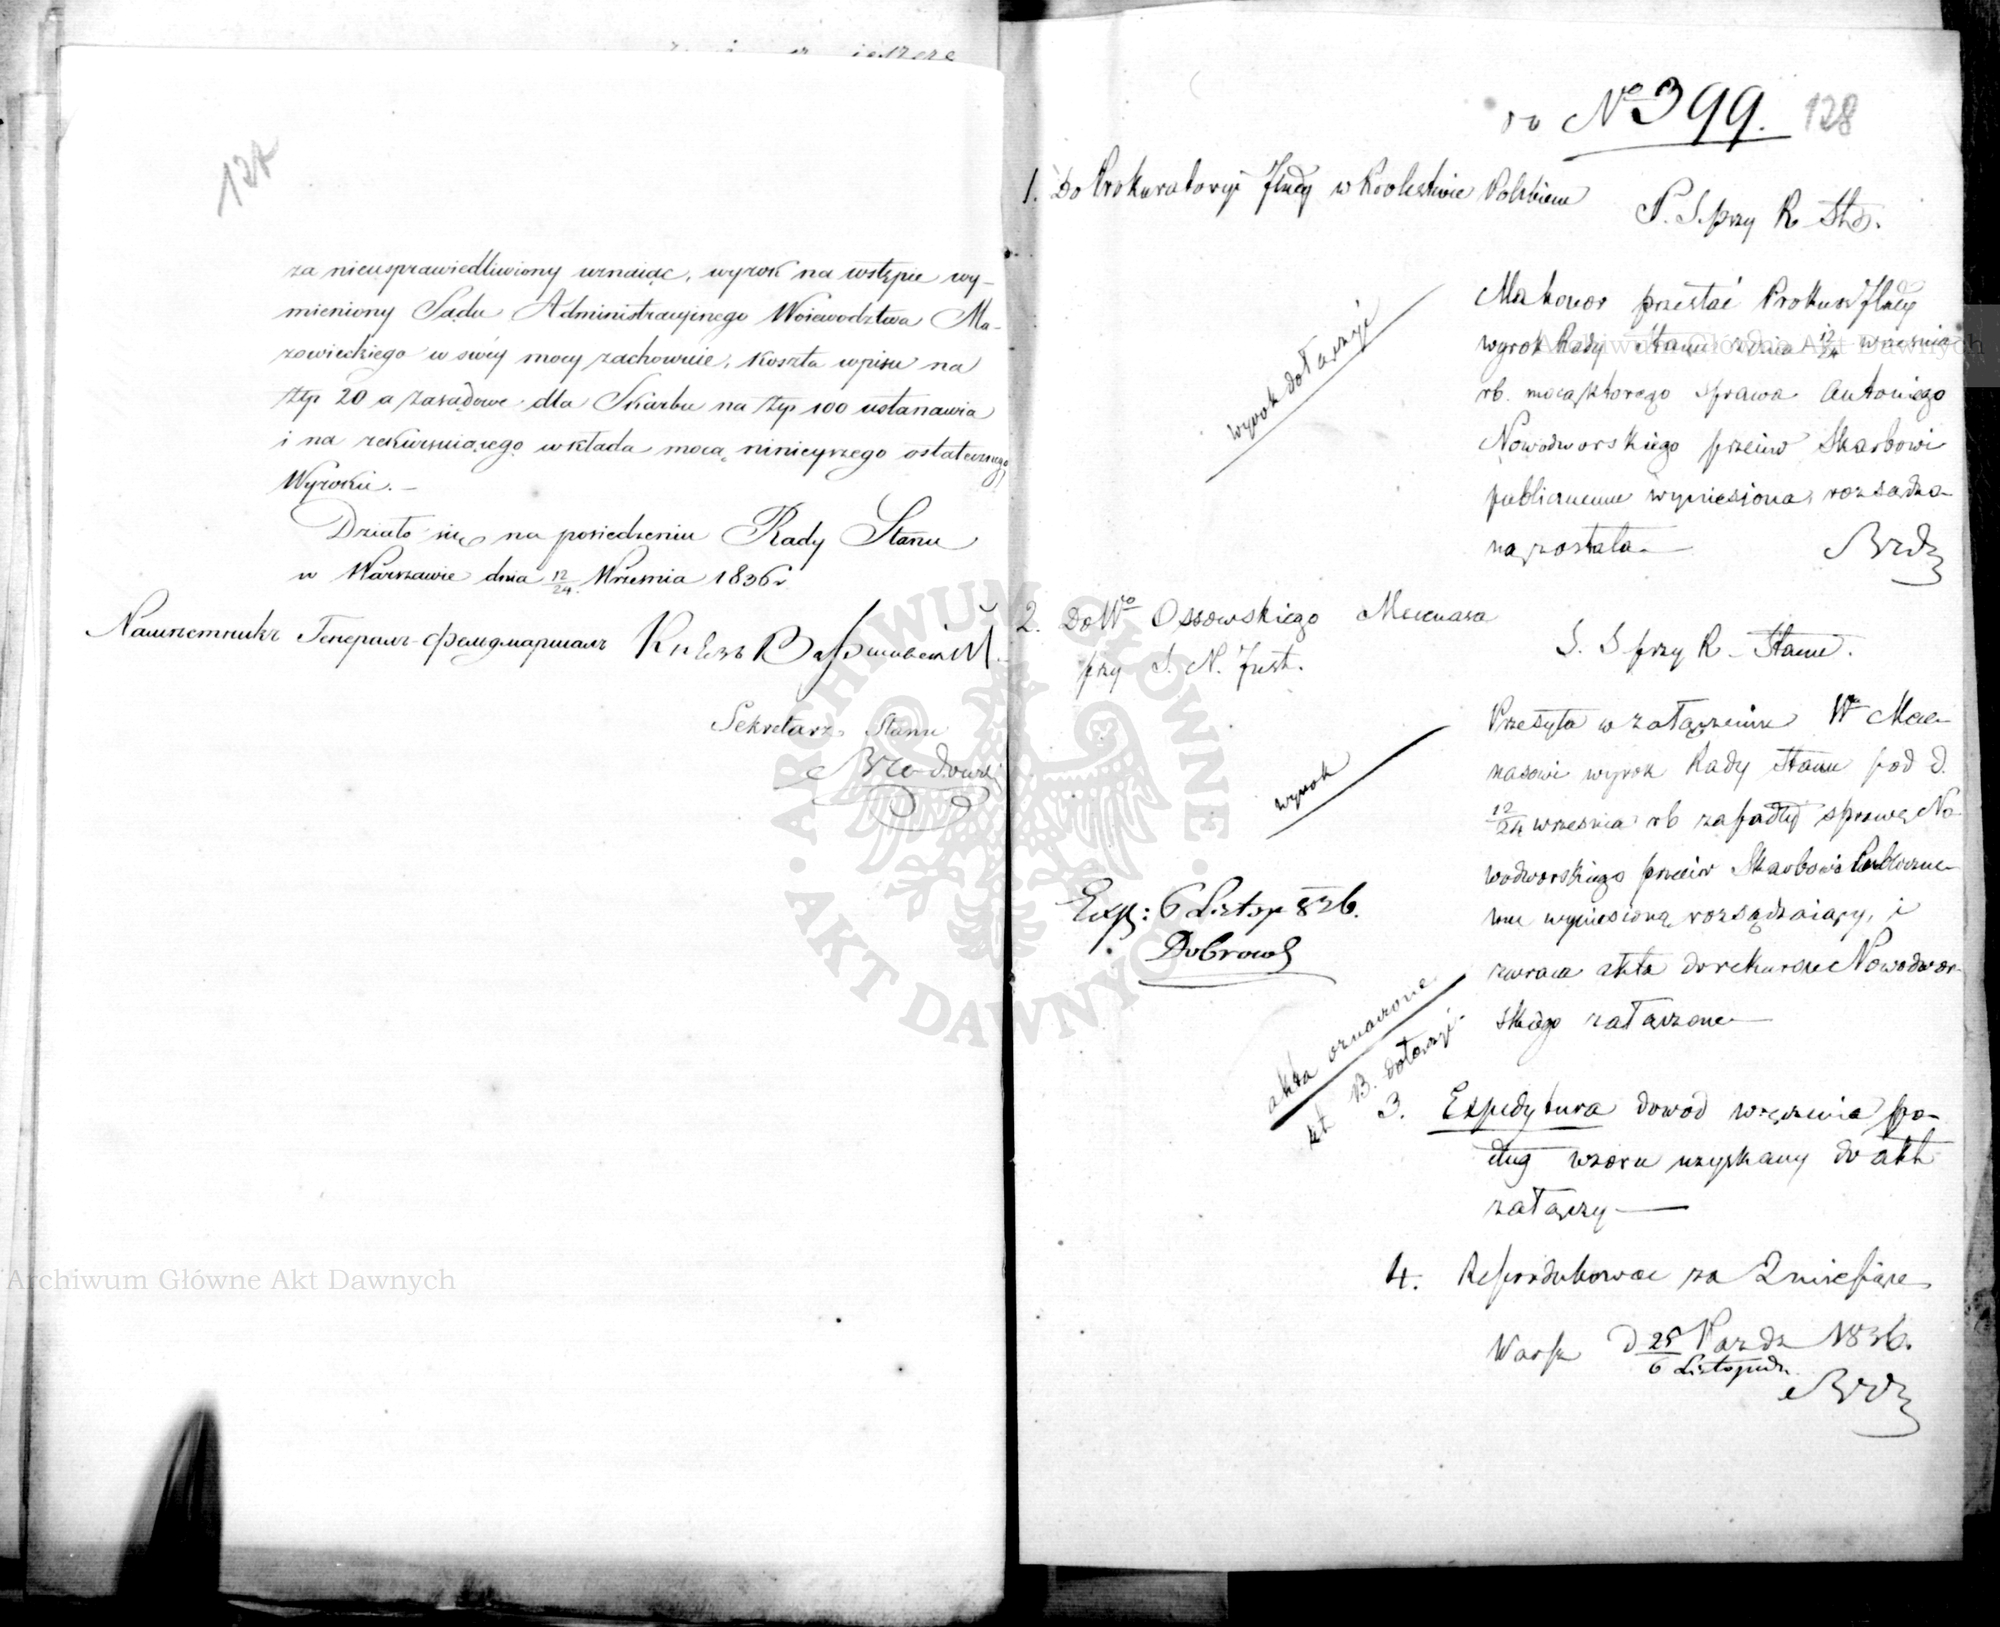 127
za nieusprawiedliwiony uznaiąc, wyrok na wstępie wy-
mieniony Sądu Administracyinego Woiewództwa Ma-
zowieckiego w swéy mocy zachowuie, koszta wpisu na
Złp 20 a zasądowe dla Skarbu na Złp 100 ustanawia
i na rekuruiącego wkłada mocą ninieyszego ostatecznego
Wyroku. -
Działo się na posiedzeniu Rady Stanu
w Warszawie dnia 12/24 Września 1836 r
Намѣстникъ Генералъ-Фельдмаршалъ Князь Варшавскій.
Sekretarz Stanu
Brodowski
do № 399. 128
1. Do Prokuratoryi Jlney w Krolestwie Polskiem
P. S. przy R. Stu.
Mahonor przesłać Prokur Jlney
wyrok Rady Stanu z dnia 12/24 września
rb. mocą którego sprawa Antoniego
Nowodworskiego przeciw Skarbowi
publicznemu wyniesiona, rozsądzo-
ną została —
Brdz
wyrok dołączyć
2. Do Wo Ossowskiego Mecenasa
przy S. N. Just.
S. S przy R. Stanu.
Przesyła w załączeniu Wu Mece-
nasowi wyrok Rady Stanu pod d.
12/24 września rb zapadły sprawę No-
wodworskiego przeciw Skarbowi Publiczne-
mu wyniesioną rozsądzaiący, i
zwraca akta do rekursu Nowodwor-
skiego załączone —
wyrok
Exp: 6 Listop 836.
Dobrowol
akta oznaczone
lit B. dołączyć -
3. Expedytura dowód wręczenia po-
dług wzoru uzyskany do akt
załączy —
4. Reprodukować za 2 miesiące
Warsz D 25 Pazdz 1836.
6 Listopada
Brdz
Archiwum Główne Akt Dawnych
Archiwum Główne Akt Dawnych
· ARCHIWUM GŁÓWNE · AKT DAWNYCH